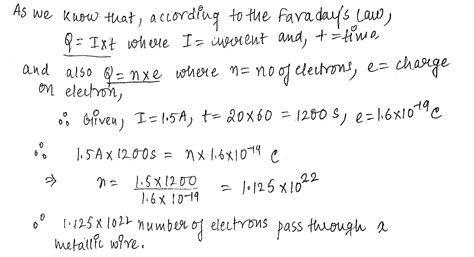 As we know that, according to the Faraday's Law,
Q = I x t where I = current and, t = time
and also Q = n x e where n = no of electrons, e = charge
on electron,
∴ Given, I = 1.5A, t = 20 x 60 = 1200 s, e = 1.6 x 10⁻¹⁹ C
∴ 1.5A x 1200s = n x 1.6 x 10⁻¹⁹ C
⇒ n = 1.5 x 1200 / 1.6 x 10⁻¹⁹ = 1.125 x 10²²
∴ 1.125 x 10²² number of electrons pass through a
metallic wire.